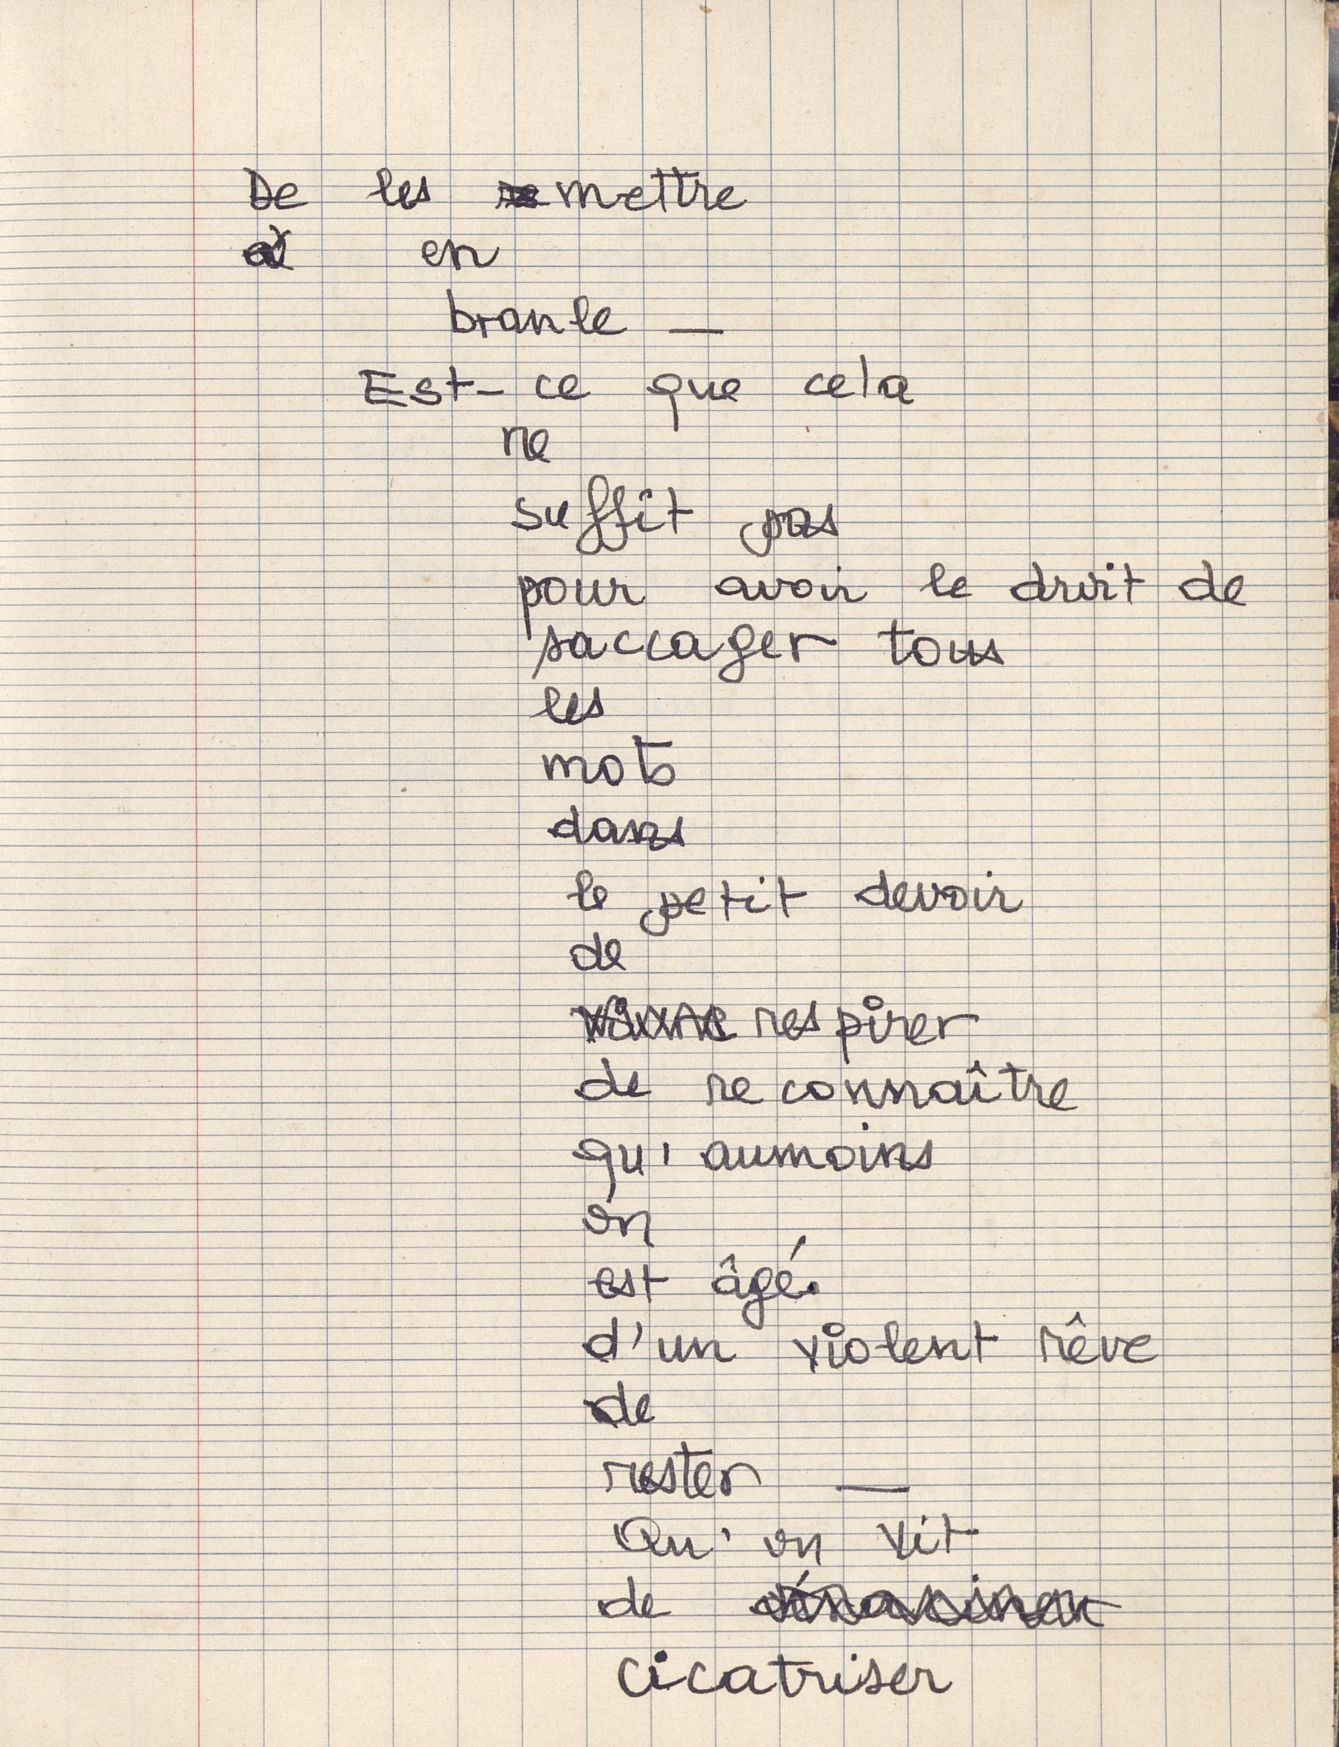 De les mettre
en
branle —
Est-ce que cela
ne
suffît pas
pour avoir le droit de
saccager tous
les
mots
dans
le petit devoir
de
respirer
de reconnaître
qu'aumoins
on
est âgé
d'un violent rêve
de
rester —
Qu'on vit
de
cicatriser